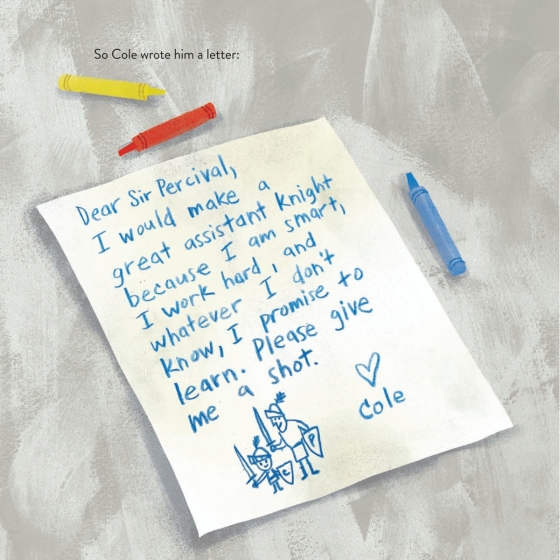 So Cole wrote him a letter:
Dear Sir Percival,
I would make a
great assistant knight
because I am smart,
I work hard, and
whatever I don't
know, I promise to
learn. Please give
me a shot.
♡
Cole
C P